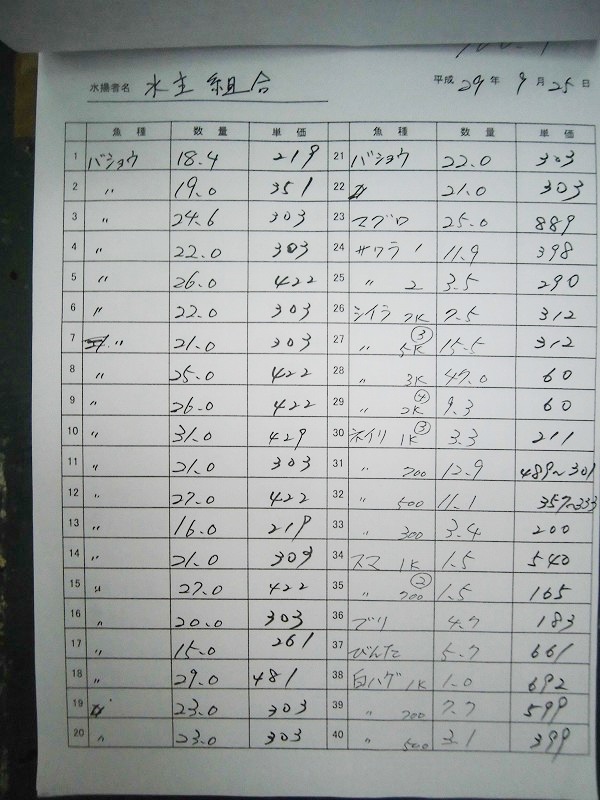 水揚者名 水主組合 平成 29 年 9 月 25 日
魚種 数量 単価 魚種 数量 単価
1 バショウ 18.4 219 21 バショウ 22.0 303
2 〃 19.0 351 22 〃 21.0 303
3 〃 24.6 303 23 マグロ 25.0 889
4 〃 22.0 303 24 サワラ 1 11.9 398
5 〃 26.0 422 25 〃 2 3.5 290
6 〃 22.0 303 26 シイラ 7K 7.5 312
7 〃 21.0 303 27 〃 5K ③ 15.5 312
8 〃 25.0 422 28 〃 3K 47.0 60
9 〃 26.0 422 29 〃 2K ④ 9.3 60
10 〃 31.0 429 30 ネイリ 1K ③ 3.3 211
11 〃 21.0 303 31 〃 700 12.9 489~301
12 〃 27.0 422 32 〃 500 11.1 357~333
13 〃 16.0 219 33 〃 300 3.4 200
14 〃 21.0 303 34 スマ 1K 1.5 540
15 〃 27.0 422 35 〃 700 ② 1.5 165
16 〃 20.0 303 36 ブリ 4.7 183
17 〃 15.0 261 37 びんた 5.7 661
18 〃 29.0 481 38 白ハゲ 1K 1.0 692
19 〃 23.0 303 39 〃 700 7.7 599
20 〃 23.0 303 40 〃 500 3.1 399